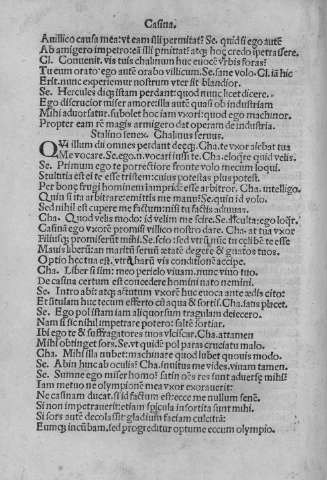 Casina.
A uillico causa mea: vt eam illi permitat? Se. quid si ego autẽ
Ab amigero impetro: eã illi pmittat? atq; hoc credo ipetrassere.
Cl. Conuenit. vis tuis chalinum huc euocẽ vrbis foras?
Tu eum orato: ego autẽ orabo villicum. Se. sane volo. Cl. iã hic
Erit. nunc experimur nostrum vter sit blandior.
Se. Hercules diq; istam perdant: quod nunc licet dicere.
Ego discrucior miser amore: illa autẽ quasi ob industriam
Mihi aduorsatur. subolet hoc iam vxori: quod ego machinor.
Propter eam rẽ magis armigero dat operam de industria.
Stalino senex. Chalinus seruus.
QVi illum dii omnes perdant decq;. Cha. te vxor aiebat tua
Me vocare. Se. ego. n. vocari iussi te. Cha. eloqre quid velis.
Se. Primum ego te porrectiore fronte volo mecum loqui.
Stultitia est ei te esse tristem: cuius potestas plus potest.
Per bonę frugi hominem iampride esse arbitror. Cha. intelligo.
Quin si ita arbitrare: emittis me manu? Se. quin id volo.
Sed nihil est cupere me factum: nisi tu factis adiuuas.
Cha. Quod velis modo: id velim me scire. Se. asculta: ego loqr.
Casinã ego vxorẽ promisi villico nostro dare. Cha. at tua vxor
Filiusq; promiserũt mihi. Se. scio: sed vtrũ nũc tu celibẽ te esse
Mauis liberũ: an maritũ seruũ ætatẽ degere & gnatos tuos.
Optio hęc tua est. vtrã harũ vis conditionẽ accipe.
Cha. Liber si sim: meo perielo viuam. nunc viuo tuo.
De casina certum est concedere homini nato nemini.
Se. Intro abi: atq; actutum vxorẽ huc euoca ante ædis cito:
Et situlam huc tecum efferto cũ aqua & sortis. Cha. satis placet.
Se. Ego pol istam iam aliquorsum tragulam deicero.
Nam si sic nihil impetrare potero: saltẽ sortiar.
Ibi ego te & suffragatores tuos vlciscar. Cha. attamen
Mihi obtinget sors. Se. vt quidẽ pol pæras cruciatu malo.
Cha. Mihi illa nubet: machinare quod lubet quouis modo.
Se. Abin hinc ab oculis? Cha. inuitus me vides. viuam tamen.
Se. Sumne ego miser homo? satin oẽs res sunt aduersę mihi?
Iam metuo ne olympionẽ mea vxor exorauerit:
Ne casinam ducat. si id factum est: ecce me nullum senẽ.
Si non impetrauerit: etiam spicula in sortita sunt mihi.
Si sors autẽ decolassit: gladium faciam culcitrã:
Eumq; incũbam. sed progreditur optume eccum olympio.